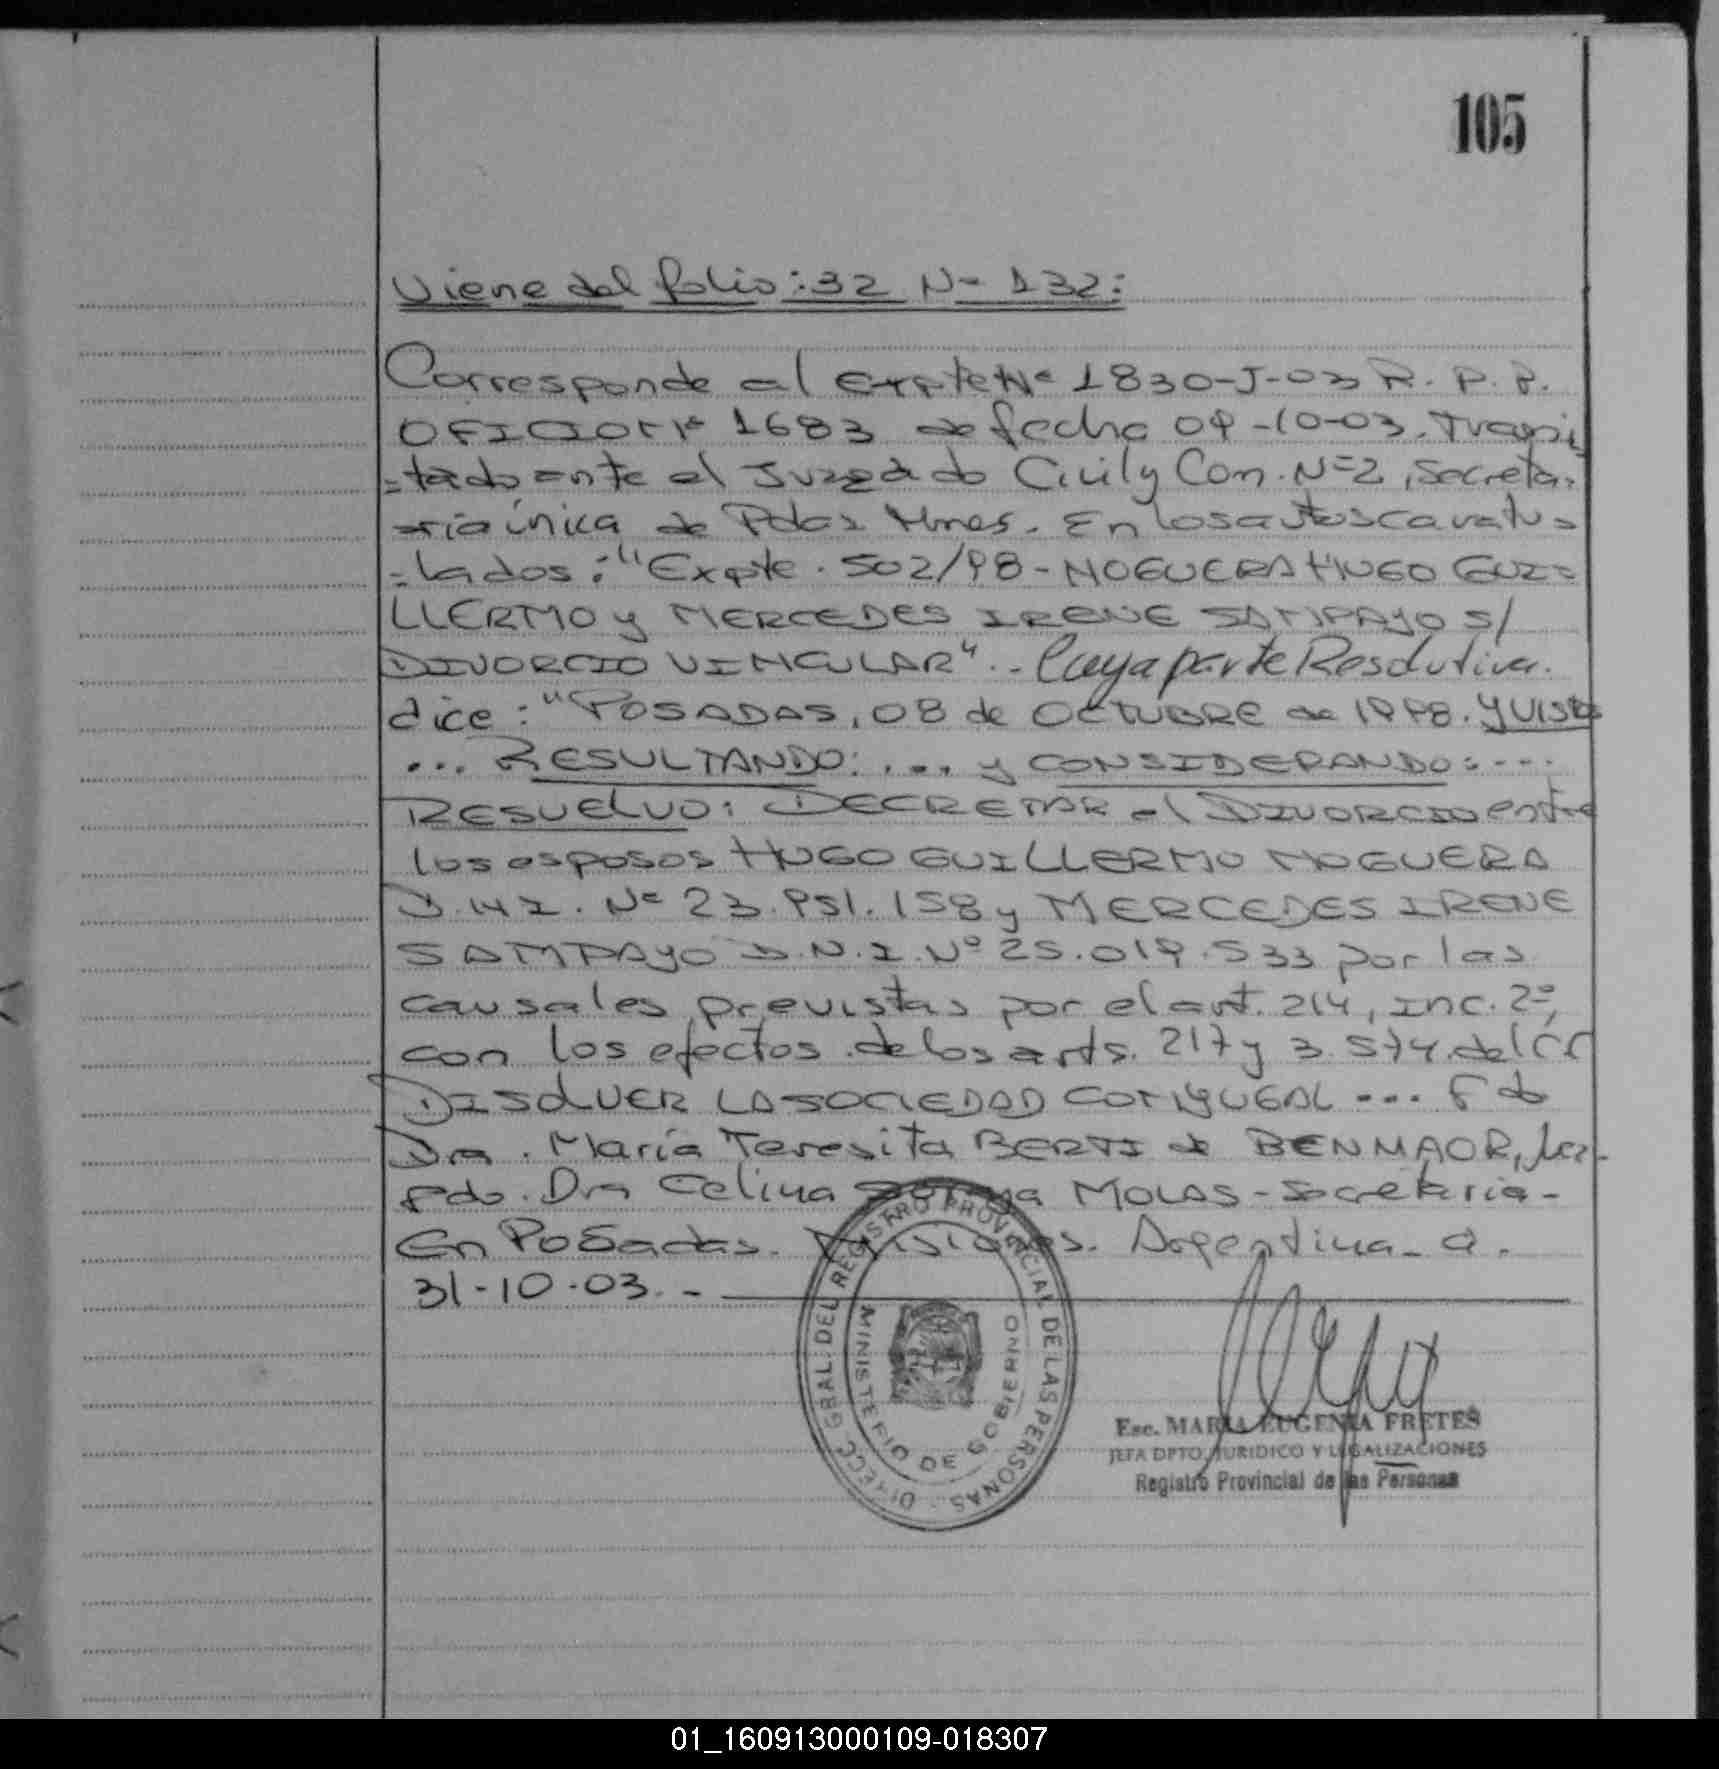 105
Viene del folio: 32 Nº 132:
Corresponde al Expte Nº 1830-J-03 R. P. P.
OFICIO Nº 1683 de fecha 09-10-03. Trami
=tado ante el Juzgado Civil y Com. Nº 2, Secreta=
=ria única de Pdas Mnes. En los autos caratu=
=lados: "Expte. 502/98 - NOGUERA HUGO GUI=
LLERMO y MERCEDES IRENE SAMPAYO S/
DIVORCIO VINCULAR". - Cuya parte Resolutiva.
dice: "POSADAS, 08 de OCTUBRE de 1998. Y VISTOS
... RESULTANDO: .... y CONSIDERANDO: ....
RESUELVO: DECRETAR el DIVORCIO entre
los esposos HUGO GUILLERMO NOGUERA
D.N.I. Nº 23.951.158 y MERCEDES IRENE
SAMPAYO D.N.I. Nº 25.019.533 por las
causales previstas por el art. 214, inc. 2º,
con los efectos de los arts. 217 y 3.574 del CC
DISOLVER LA SOCIEDAD CONYUGAL .... Fdo
Dra. María Teresita BERTI de BENMAOR, Juez-
Fdo. Dra Celina MOLAS - Secretaria -
En Posadas. Misiones. Argentina - a.
31-10-03. -
DIRECC. GRAL. DEL REGISTRO PROVINCIAL DE LAS PERSONAS
MINISTERIO DE GOBIERNO
Esc. MARIA EUGENIA FRETES
JEFA DPTO. JURIDICO Y LEGALIZACIONES
Registro Provincial de las Personas
01_160913000109-018307